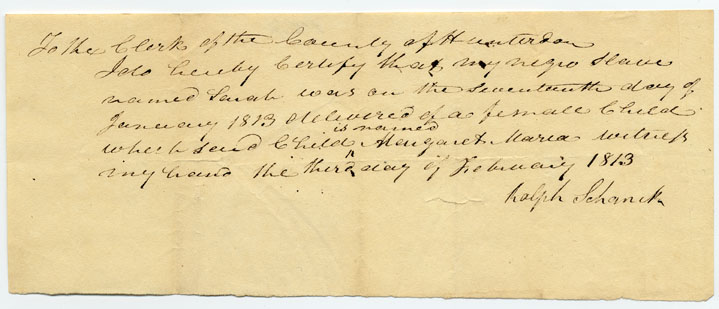 To the Clerk of the County of Hunterdon
I do hereby Certify that my negro Slave
named Sarah was on the Seventeenth day of
January 1813 delivered of a female Child
which said Child is named Margaret Maria witness
my hand the third day of February 1813
Ralph Schanck